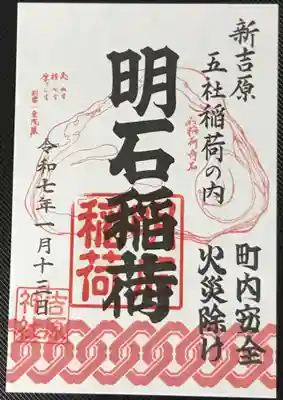 新吉原
五社稲荷の内
町内安全
火災除け
明石稲荷
稲荷
令和七年一月十三日
吉原
神社